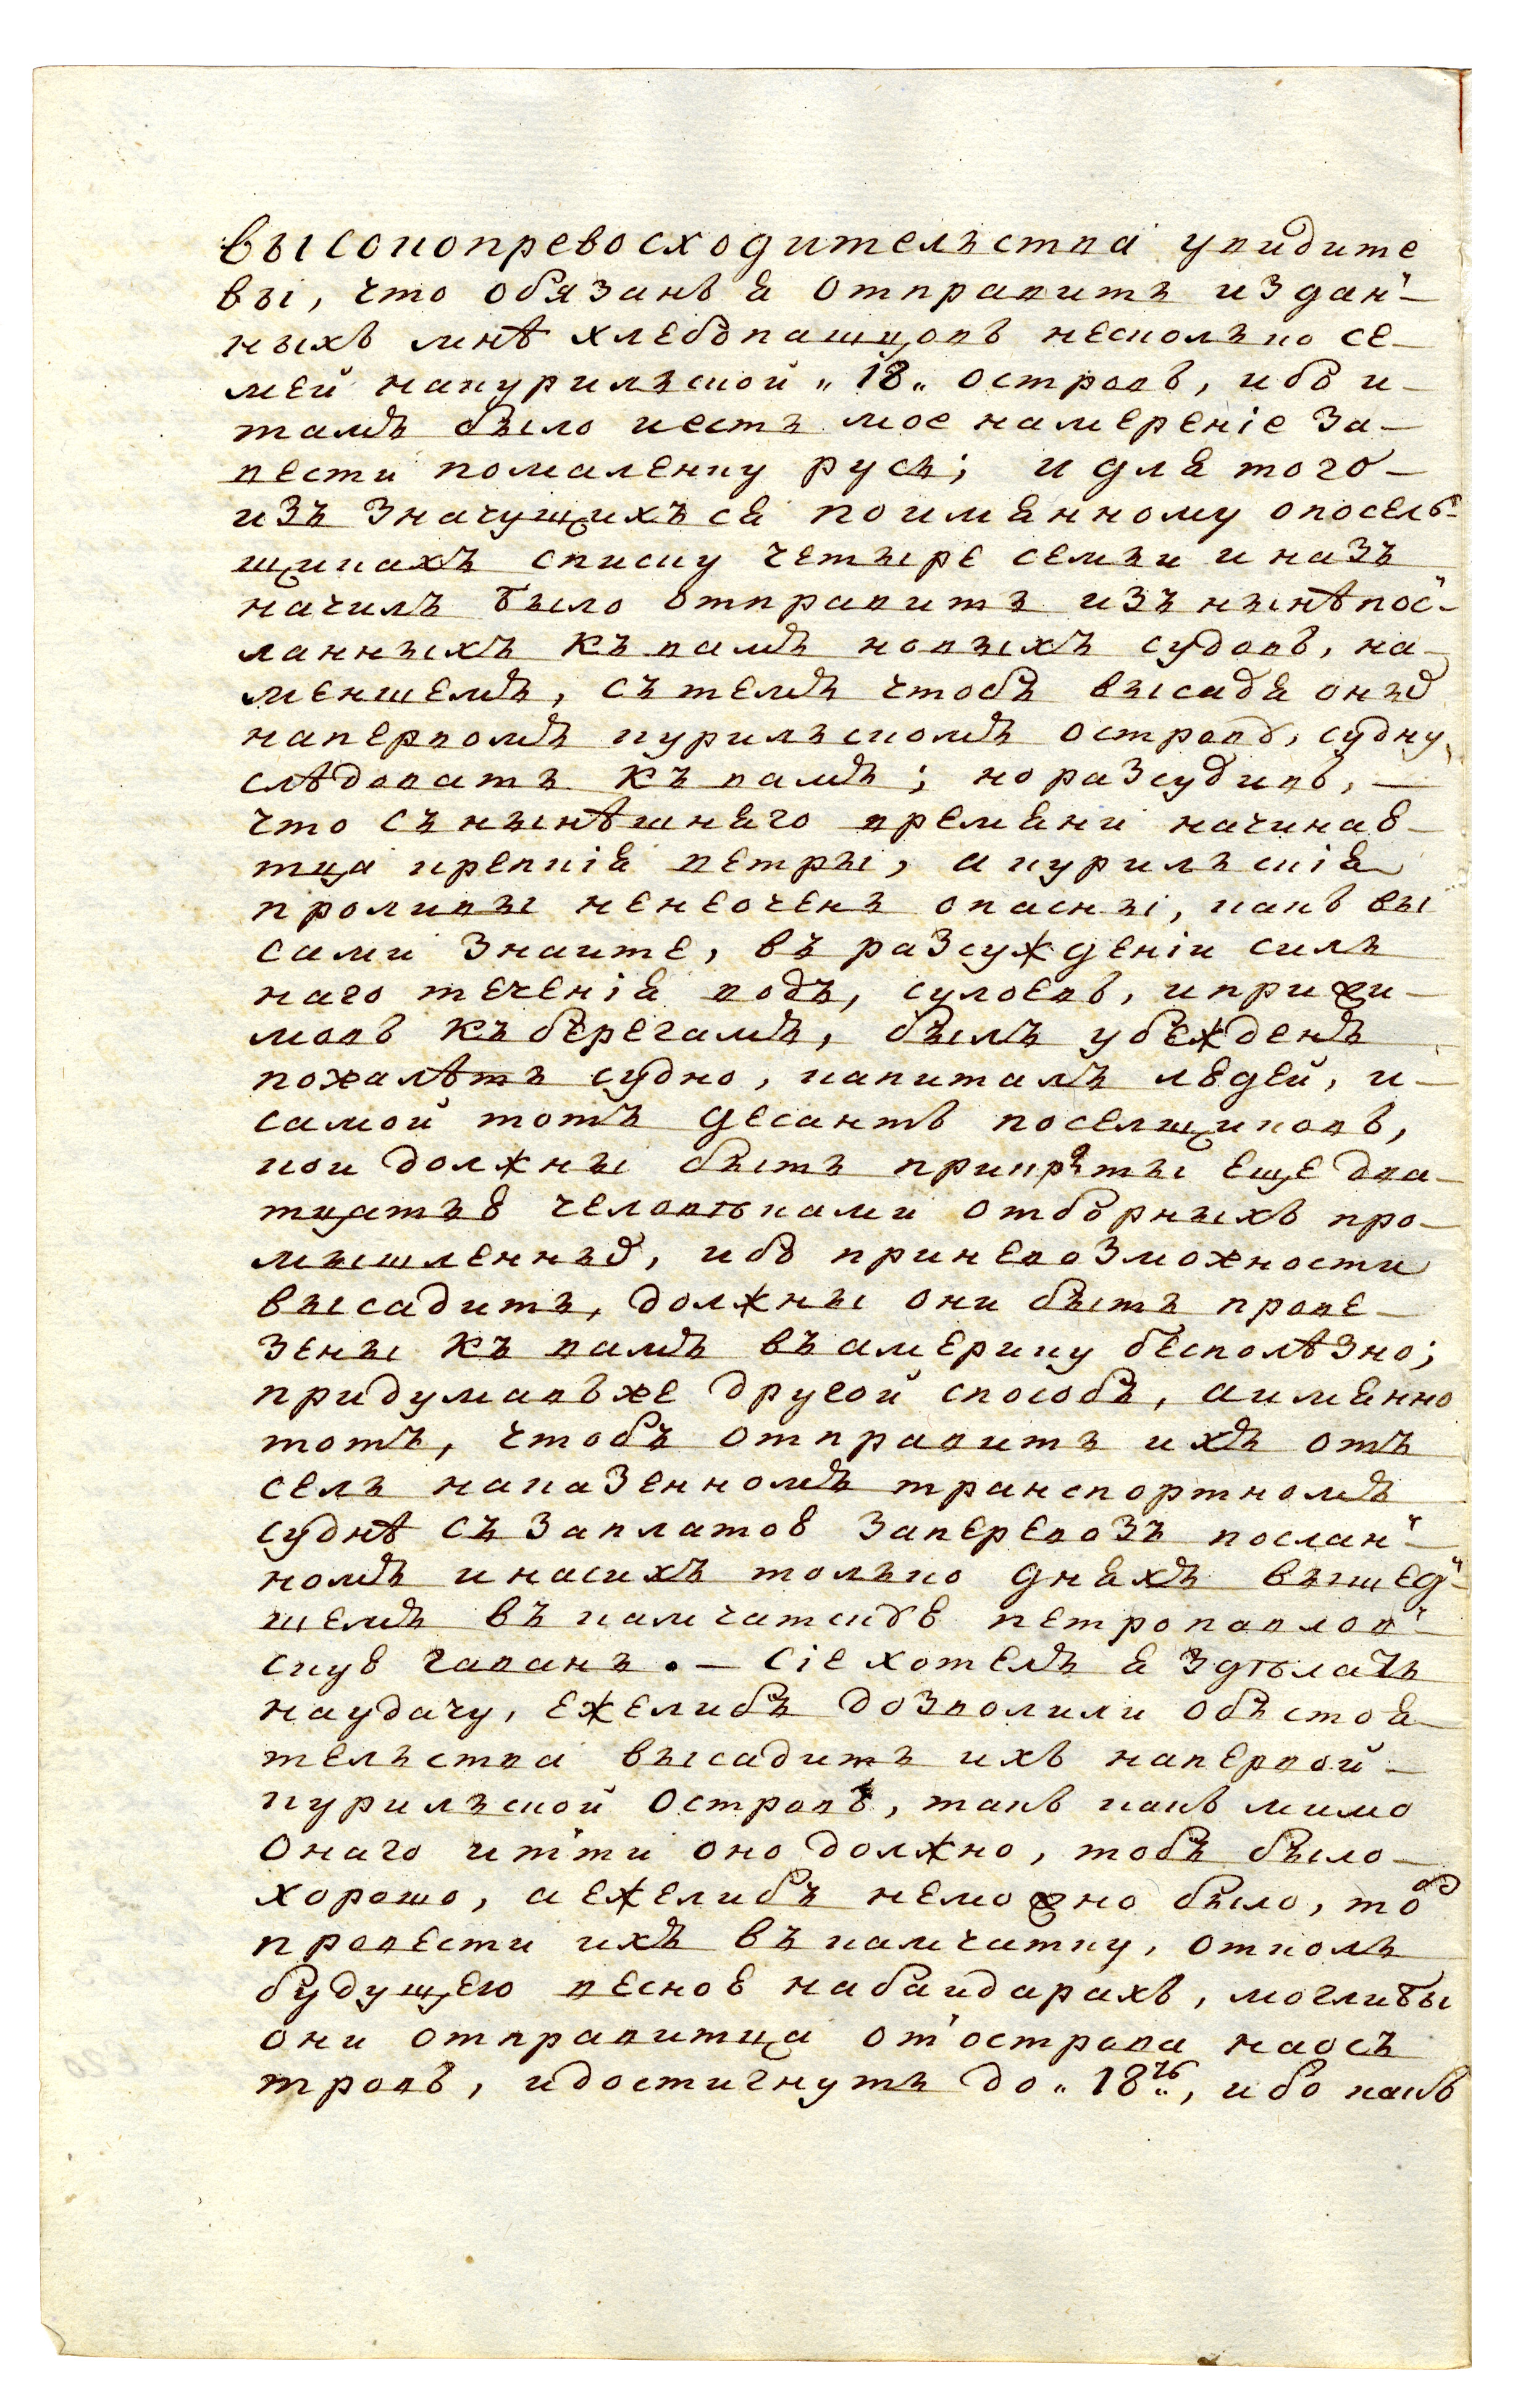 высокопревосходительства увидите
вы, что обязанъ я отправить издан-
ныхъ мнѣ хлебопашцовъ несколько се-
мей накурильской „18„ островъ, ибо и-
тамъ было иесть мое намереніе за-
вести помаленку русь; и для того-
изъ значущихъся поимянному опосель-
щикахъ списку четыре семьи и назъ
начилъ было отправить изъ нынѣпос-
ланныхъ къ вамъ новыхъ судовъ, на-
меншемъ, съ темъ чтобъ высадя оныя
напервомъ курильскомъ острове, судну
слѣдовать къ вамъ; но разсудивъ, —
что съ нынѣшняго времяни начинаю-
тца крепкія ветры, а курильскія
проливы ненеочень опасны, какъ вы
сами знаите, въ разсужденіи силь
наго теченія водъ, сулоевъ, и прижи-
мовъ къ берегамъ, былъ убежденъ
пожалѣть судно, капиталъ людей, и-
самой тотъ десантъ поселщиковъ,
кои должны быть прикрыты еще два-
тцатью человѣками отборныхъ про-
мышленныхъ, ибо приневозможности
высадить, должны они быть прове-
зены къ вамъ въ америку бесполѣзно;
придумавъже другой способъ, аимянно
тотъ, чтобъ отправить ихъ отъ
сель наказенномъ транспортномъ
суднѣ съ заплатою заперевозъ послан-
номъ инасихъ только дняхъ вышед-
шемъ въ камчатскую петропавлов-
скую гавань. — Сіе хотелъ я здѣлать
наудачу, ежелибъ дозволили обстоя-
тельства высадить ихъ напервой-
курильской островъ, такъ какъ мимо
онаго итти оно должно, тобъ было-
хорошо, а ежелибъ неможно было, тобъ
провести ихъ въ камчатку, отколь
будущею весною набайдарахъ, моглибы
они отправитца отострова наост
тровъ, идостигнуть до „18го„, ибо какъ